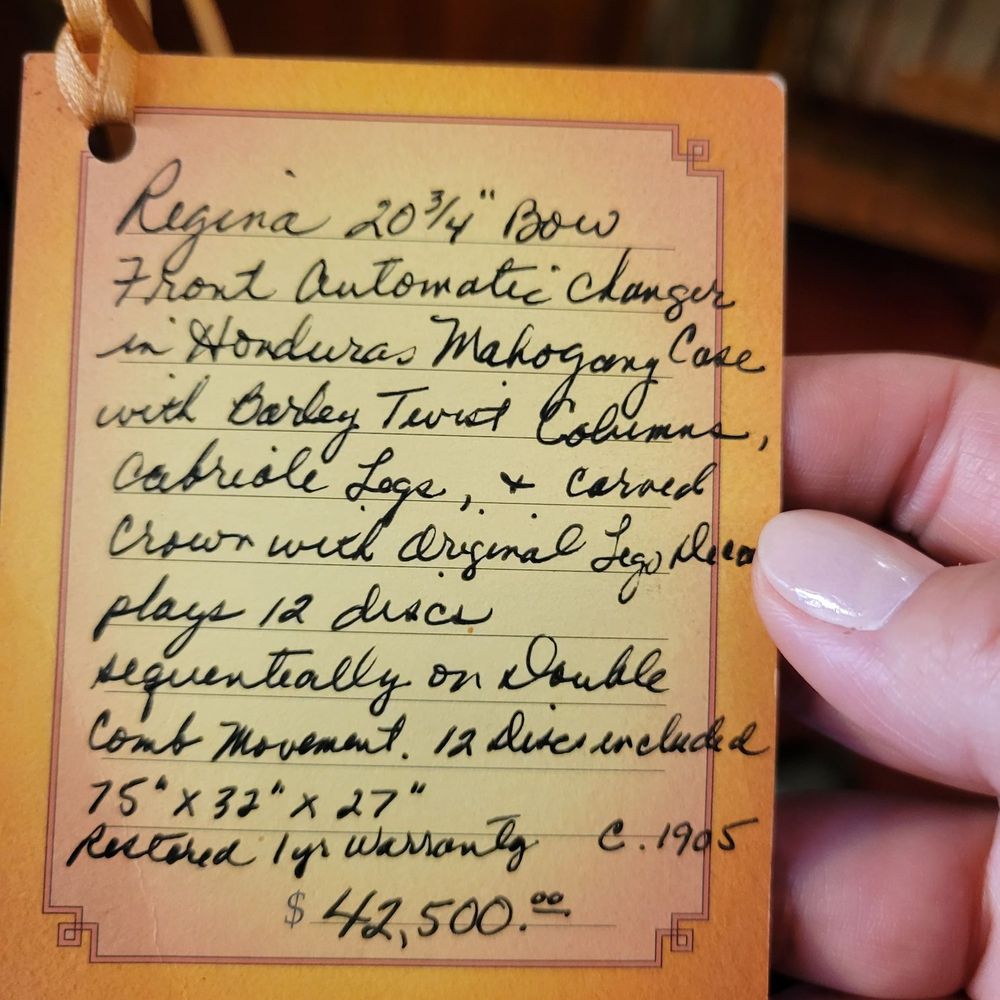 Regina 20 3/4" Bow
Front Automatic Changer
in Honduras Mahogany Case
with Barley Twist Columns,
Cabriole Legs, + Carved
Crown with Original
plays 12 discs
sequentially on Double
Comb Movement. 12 Discs included
75" x 32" x 27"
Restored 1 yr Warranty C. 1905
$ 42,500.00